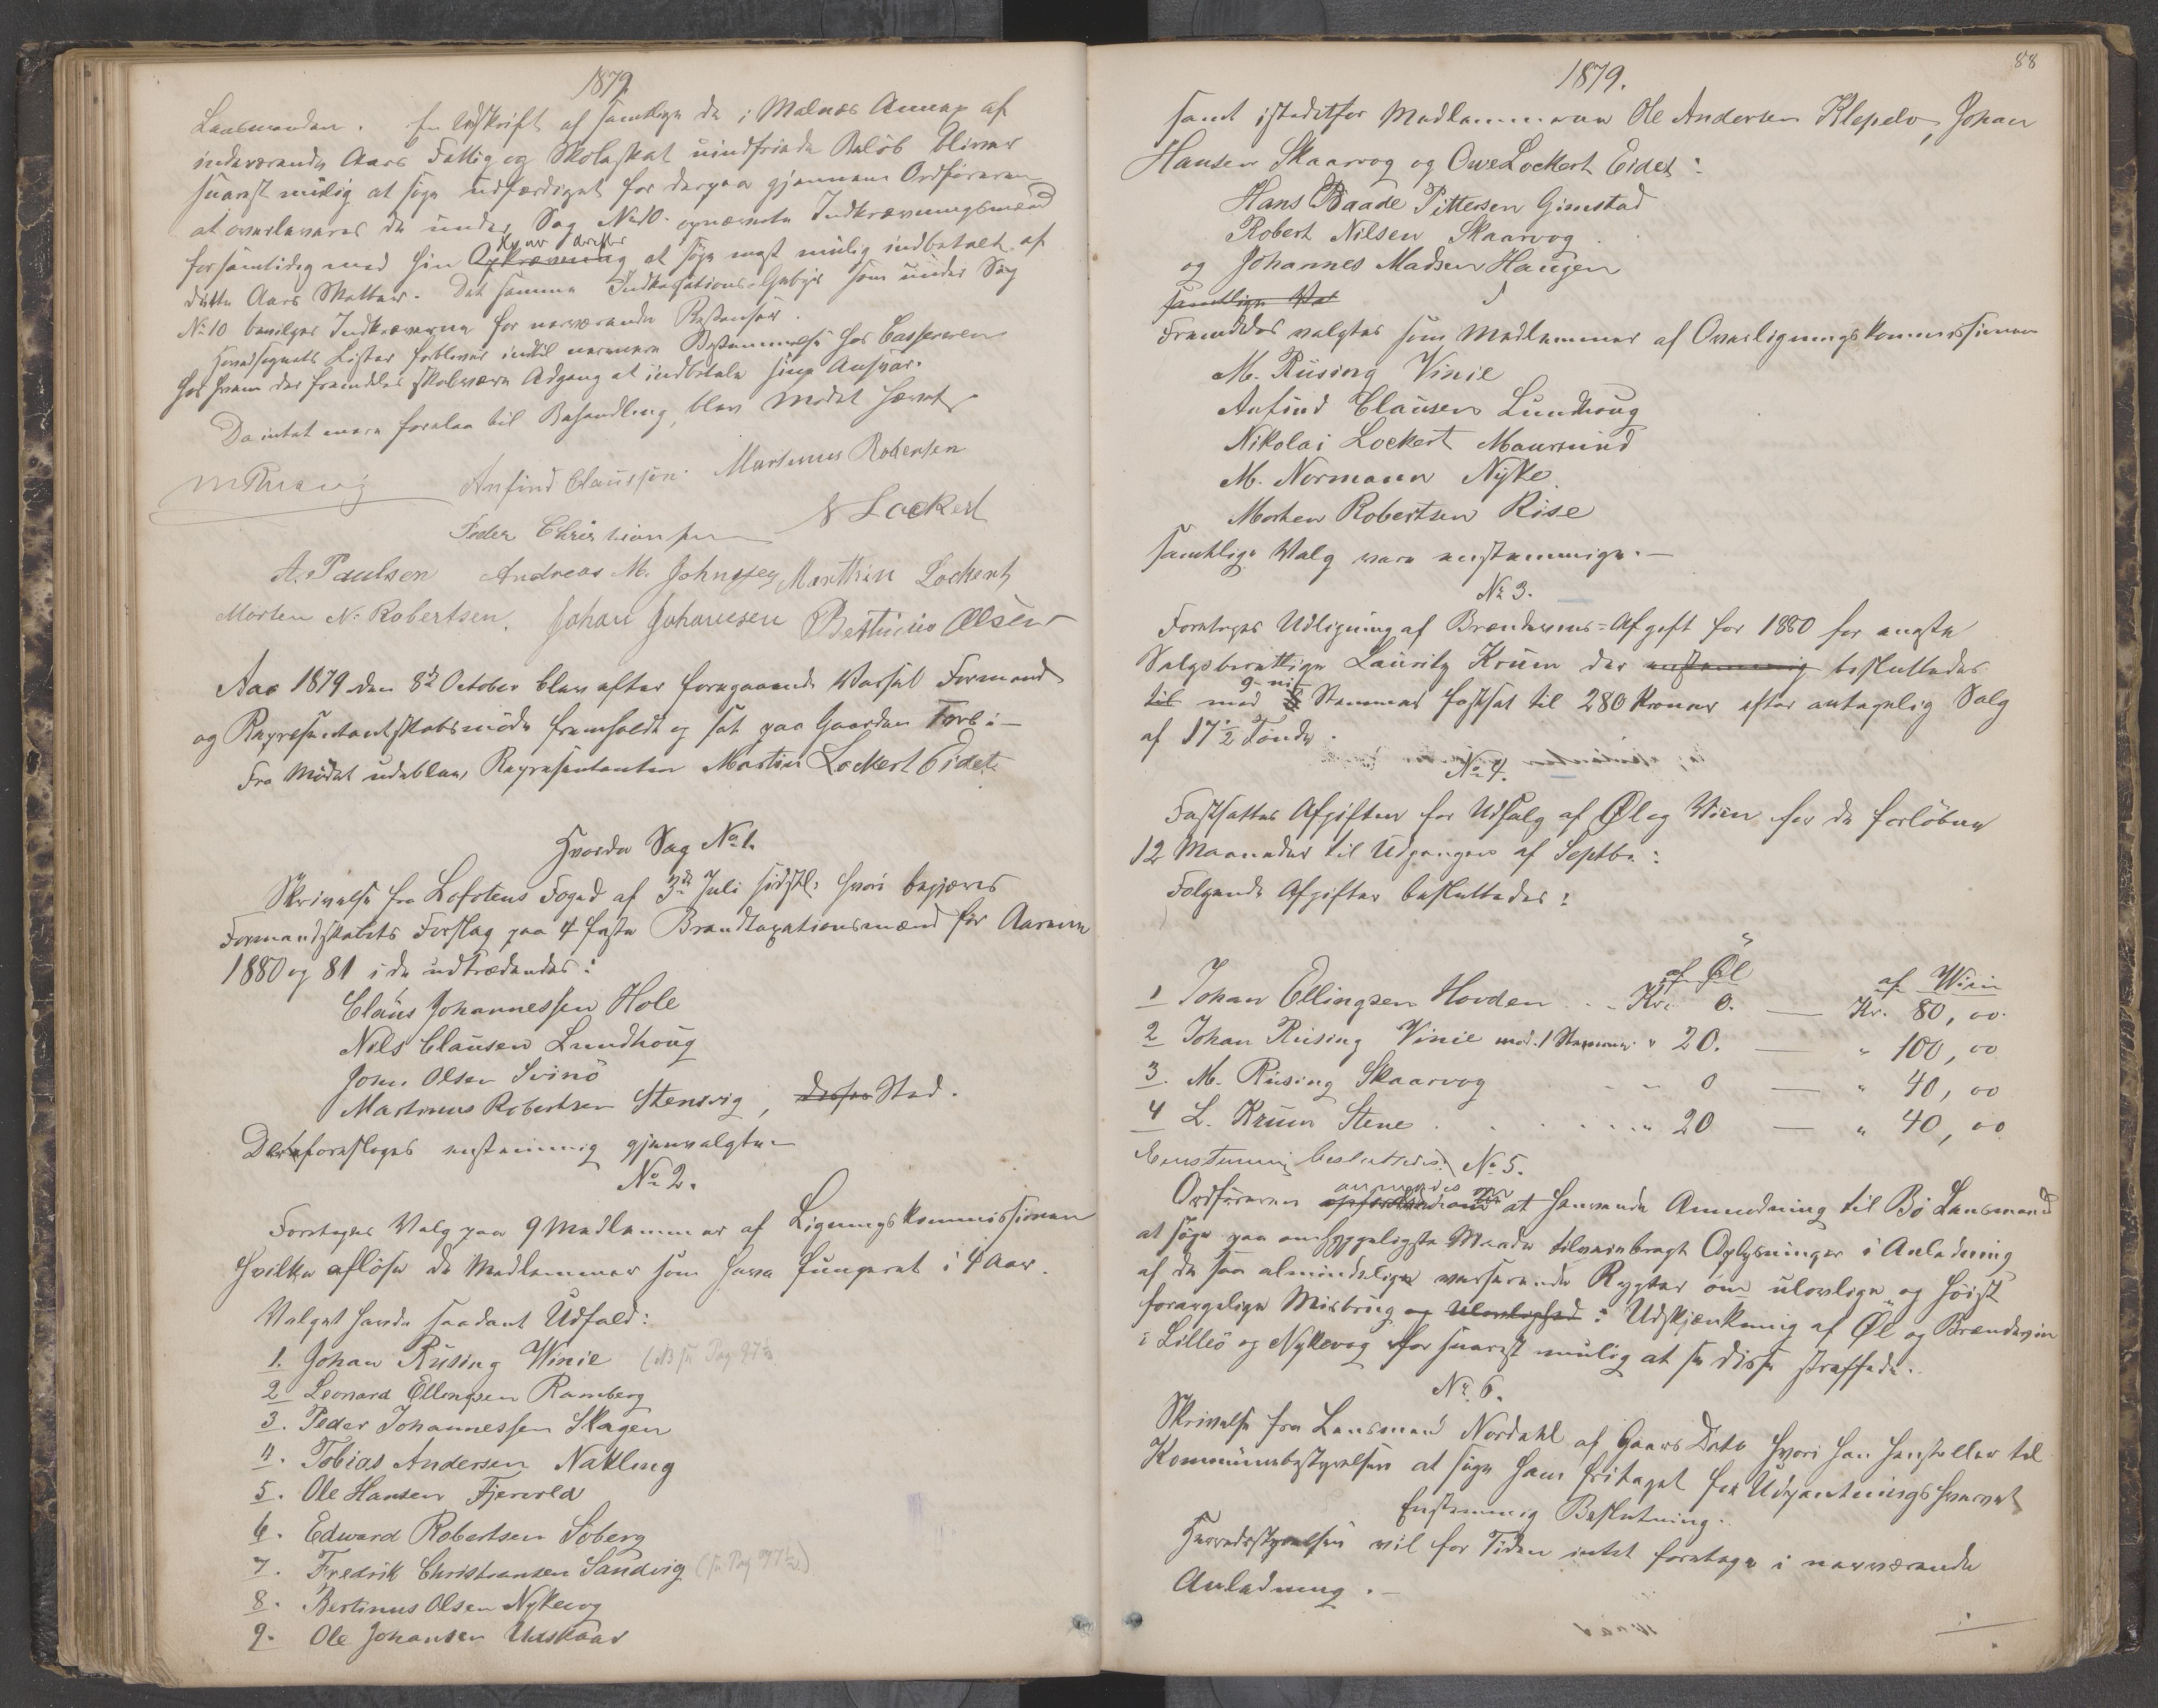 1879.
Lensmanden. En Udskrift af samtlige de i Malnæs Annex af
indeværende Aars Fattig og Skoleskat uindfriede Beløb bliver
snarest mulig at søge udfærdiget for derpaa gjennem Ordføreren
at overleveres de under Sag No 10 opnævnte Indkrævningsmænd
for samtidig med sin Opkrævning at søge mest mulig indbetalt af
dette Aars Skatter. Det samme Indkassations Gebyr som under Sag
No 10 bevilges Indkræverne for nærværende Restanser.
Hovedsognets Lister forbliver indtil nærmere Bestemmelse hos Cassereren
hos hvem der fremdeles skal være Adgang at indbetale sine Ansvar.
Da intet mere forelaa til Behandling, blev Mødet hævet.
M Rusing Anfind Claussen. Martinus Robertsen
Peder Christiansen N Lockert
A. Paulsen Andreas M. Johnssen Marthin Lockert
Morten N. Robertsen. Johan Johannesen Bertinius Olsen
Aar 1879 den 8de October blev efter foregaaende Varsel Formand-
og Repræsentantskabsmøde fremholdt og sat paa Gaarden Forø:-
Fra Mødet udeblev Repræsentanten Martin Lockert Eidet.
Hvorda Sag No 1.
Skrivelse fra Lofotens Foged af 3de Juli sidstl. hvori begjæres
Formandskabets Forslag paa 4 faste Brandtaxationsmænd for Aarene
1880 og 81 i de udtrædendes:
Claus Johannessen Hole
Nils Clausen Lundhoug
John Olsen Svinö
Martinus Robertsen Stensvig, desses Sted.
Dereforesloges enstemmig gjenvalgte.
No 2.
Foretoges Valg paa 9 Medlemmer af Ligningskommissionen
hvilke afløse de Medlemmer som have fungeret i 4 Aar.
Valget havde saadant Udfald:
1. Johan Rüsing Winie (NB se Pag 97½
2 Leonard Ellingsen Ramberg
3. Peder Johannessen Skagen
4. Tobias Andersen Natling
5. Ole Hansen Fjervold
6. Edward Robertsen Söberg
7. Fredrik Christiansen Sandvig (se Pag 97½)
8. Bertinus Olsen Nykevog
9. Ole Johansen Uvskaar
88
1879.
samt istedetfor Medlemmerne Ole Andersen Klepelv, Johan
Hansen Skaarvog og Owe Lockert Eidet:
Hans Baade Pettersen Gimstad
Robert Nilsen Skaarvog
og Johannes Madsen Haugen
samtlige Val
Fremdeles valgtes som Medlemmer af Overligningskommissionen
M. Rüsing Vinie
Anfind Clausen Lundhoug
Nikolai Lockert Maursund
M. Normann Nyke
Morten Robertsen Rise
Samtlige Valg vare enstemmige.—
No 3.
Foretoges Udligning af Brændevins-Afgift for 1880 for eneste
Salgsberettige Lauritz Krum der enstemmig besluttedes
til med 9-ni Stemmer fastsat til 280 Kroner efter antagelig Salg
af 17½ Tønde.
No 4.
Fastsattes Afgiften for Udsalg af Øl og Viin for de forløbne
12 Maaneder til Udgangen af Septbr:
Følgende Afgifter besluttedes:
af Øl af Wiin
1 Johan Ellingsen Hovden .. Kr. 0. — Kr. 80,00.
2 Johan Rüsing Vinie mod 1 Stemme " 20. — " 100,00
3. M. Rüsing Skaarvog - - 0 — " 40,00
4 L. Krum Stene . . . . . . " 20 — " 40,00
Eenstemmig besluttedes: No 5.
Ordføreren anmodes om at henvende Anmodning til Bø Lensmand
at søge paa omhyggeligste Maade tilveiebragt Oplysninger i Anledning
af de saa almindelige verserende Rygter om ulovlige og høist
forargelige Misbrug og Ulovlighed i Udskjænkning af Øl og Brændevin
i Lilleö og Nykevog for snarest mulig at se disse straffede.
No 6.
Skrivelse fra Lensmand Nordahl af Gaars Dato hvori han henstiller til
Kommunebestyrelsen at søge ham fritaget for Udpantningshvervet
Enstemmig Beslutning.
Herredsstyrelsen vil for Tiden intet foretage i nærværende
Anledning.—